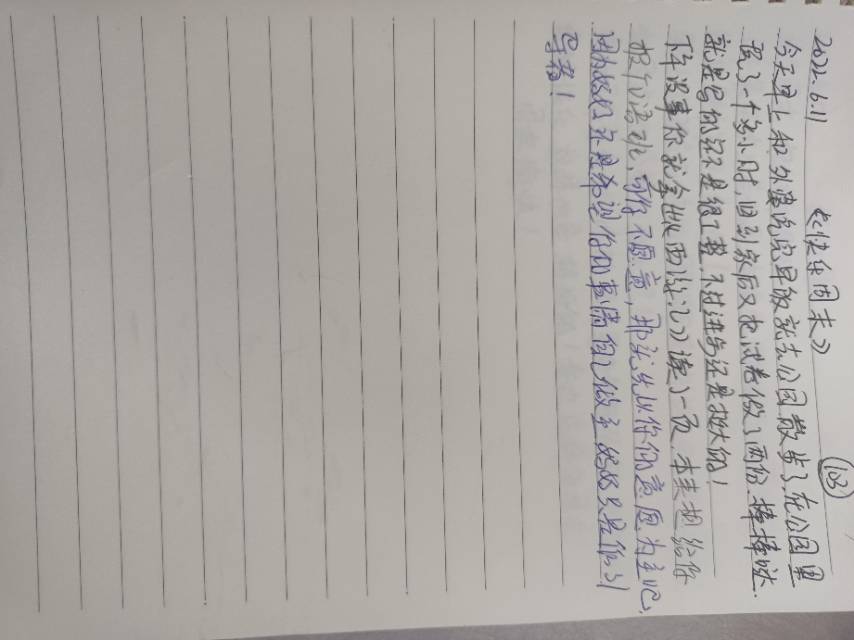 2022.6.11 《快乐周末》 (103)
今天早上和外婆吃完早饭就去公园散步了,在公园里
玩了一个多小时,回到家后又把试卷做了两份.棒棒哒.
就是写的字还是很工整,不过进步还是挺大的!
下午没事你就拿出《西游记》读了一页 本来想给你
报个口语班,可你不愿意,那就先以你的意愿为主吧,
因为妈妈不是希望你的事情自己做主 妈妈只是你的引
导者!